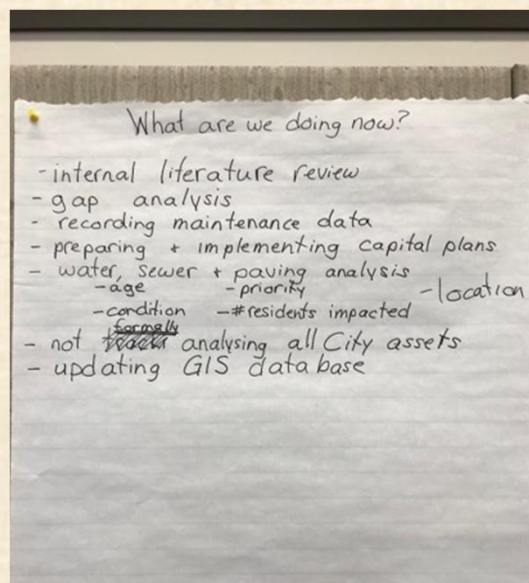 What are we doing now?
- internal literature review
- gap analysis
- recording maintenance data
- preparing + implementing capital plans
- water, sewer + paving analysis
- age - priority - location
- condition - # residents impacted
formally
- not analysing all City assets
- updating GIS data base